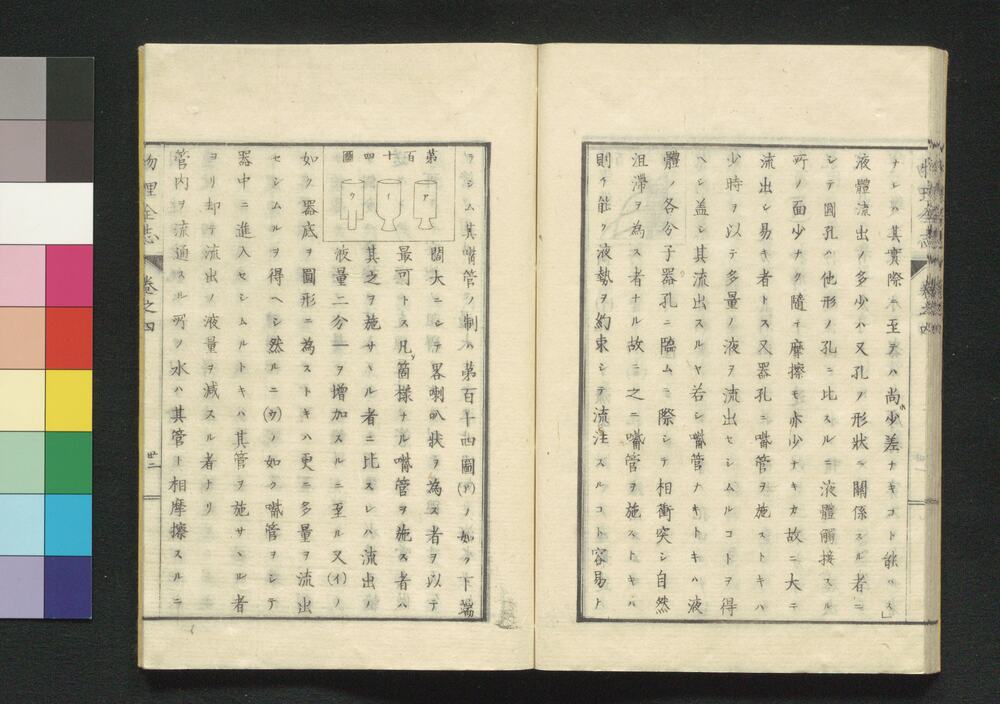 ナレハ其實際ニ至テハ尚少差ナキコト能ハス」
液體流出ノ多少ハ又孔ノ形狀ニ關係スル者ニ
シテ圓孔ハ他形ノ孔ニ比スルニ液體觸接スル
所ノ面少ナク隨テ摩擦モ亦少ナキカ故ニ大ニ
流出シ易キ者トス又器孔ニ嘴管ヲ施ストキハ
少時ヲ以テ多量ノ液ヲ流出セシムルコトヲ得
ヘシ盖シ其流出スルヤ若シ嘴管ナキトキハ液
體ノ各分子器孔ニ臨ムニ際シテ相衝突シ自然
沮滞ヲ為ス者ナル故ニ之ニ嘴管ヲ施ストキハ
則チ能ク液勢ヲ約束シテ流注スルコト容易ト
ラシム其嘴管ノ制ハ第百十四圖(ア)ノ如ク下端
第百十四圖
ア
イ
ウ
闊大ニシテ畧喇叭狀ヲ為ス者ヲ以テ
最可トス凡箇様ナル嘴管ヲ施ス者ハ
其之ヲ施サヽル者ニ比スレハ流出ノ
液量二分一ヲ增加スルニ至ル又(イ)ノ
如ク器底ヲ圓形ニ為ストキハ更ニ多量ヲ流出
セシムルヲ得ヘシ然ルニ(ウ)ノ如ク嘴管ヲシテ
器中ニ進入セシムルトキハ其管ヲ施サヽル者
ヨリ却テ流出ノ液量ヲ減スル者ナリ
管内ヲ流通スル所ノ水ハ其管ト相摩擦スルニ
物理全志
卷之四